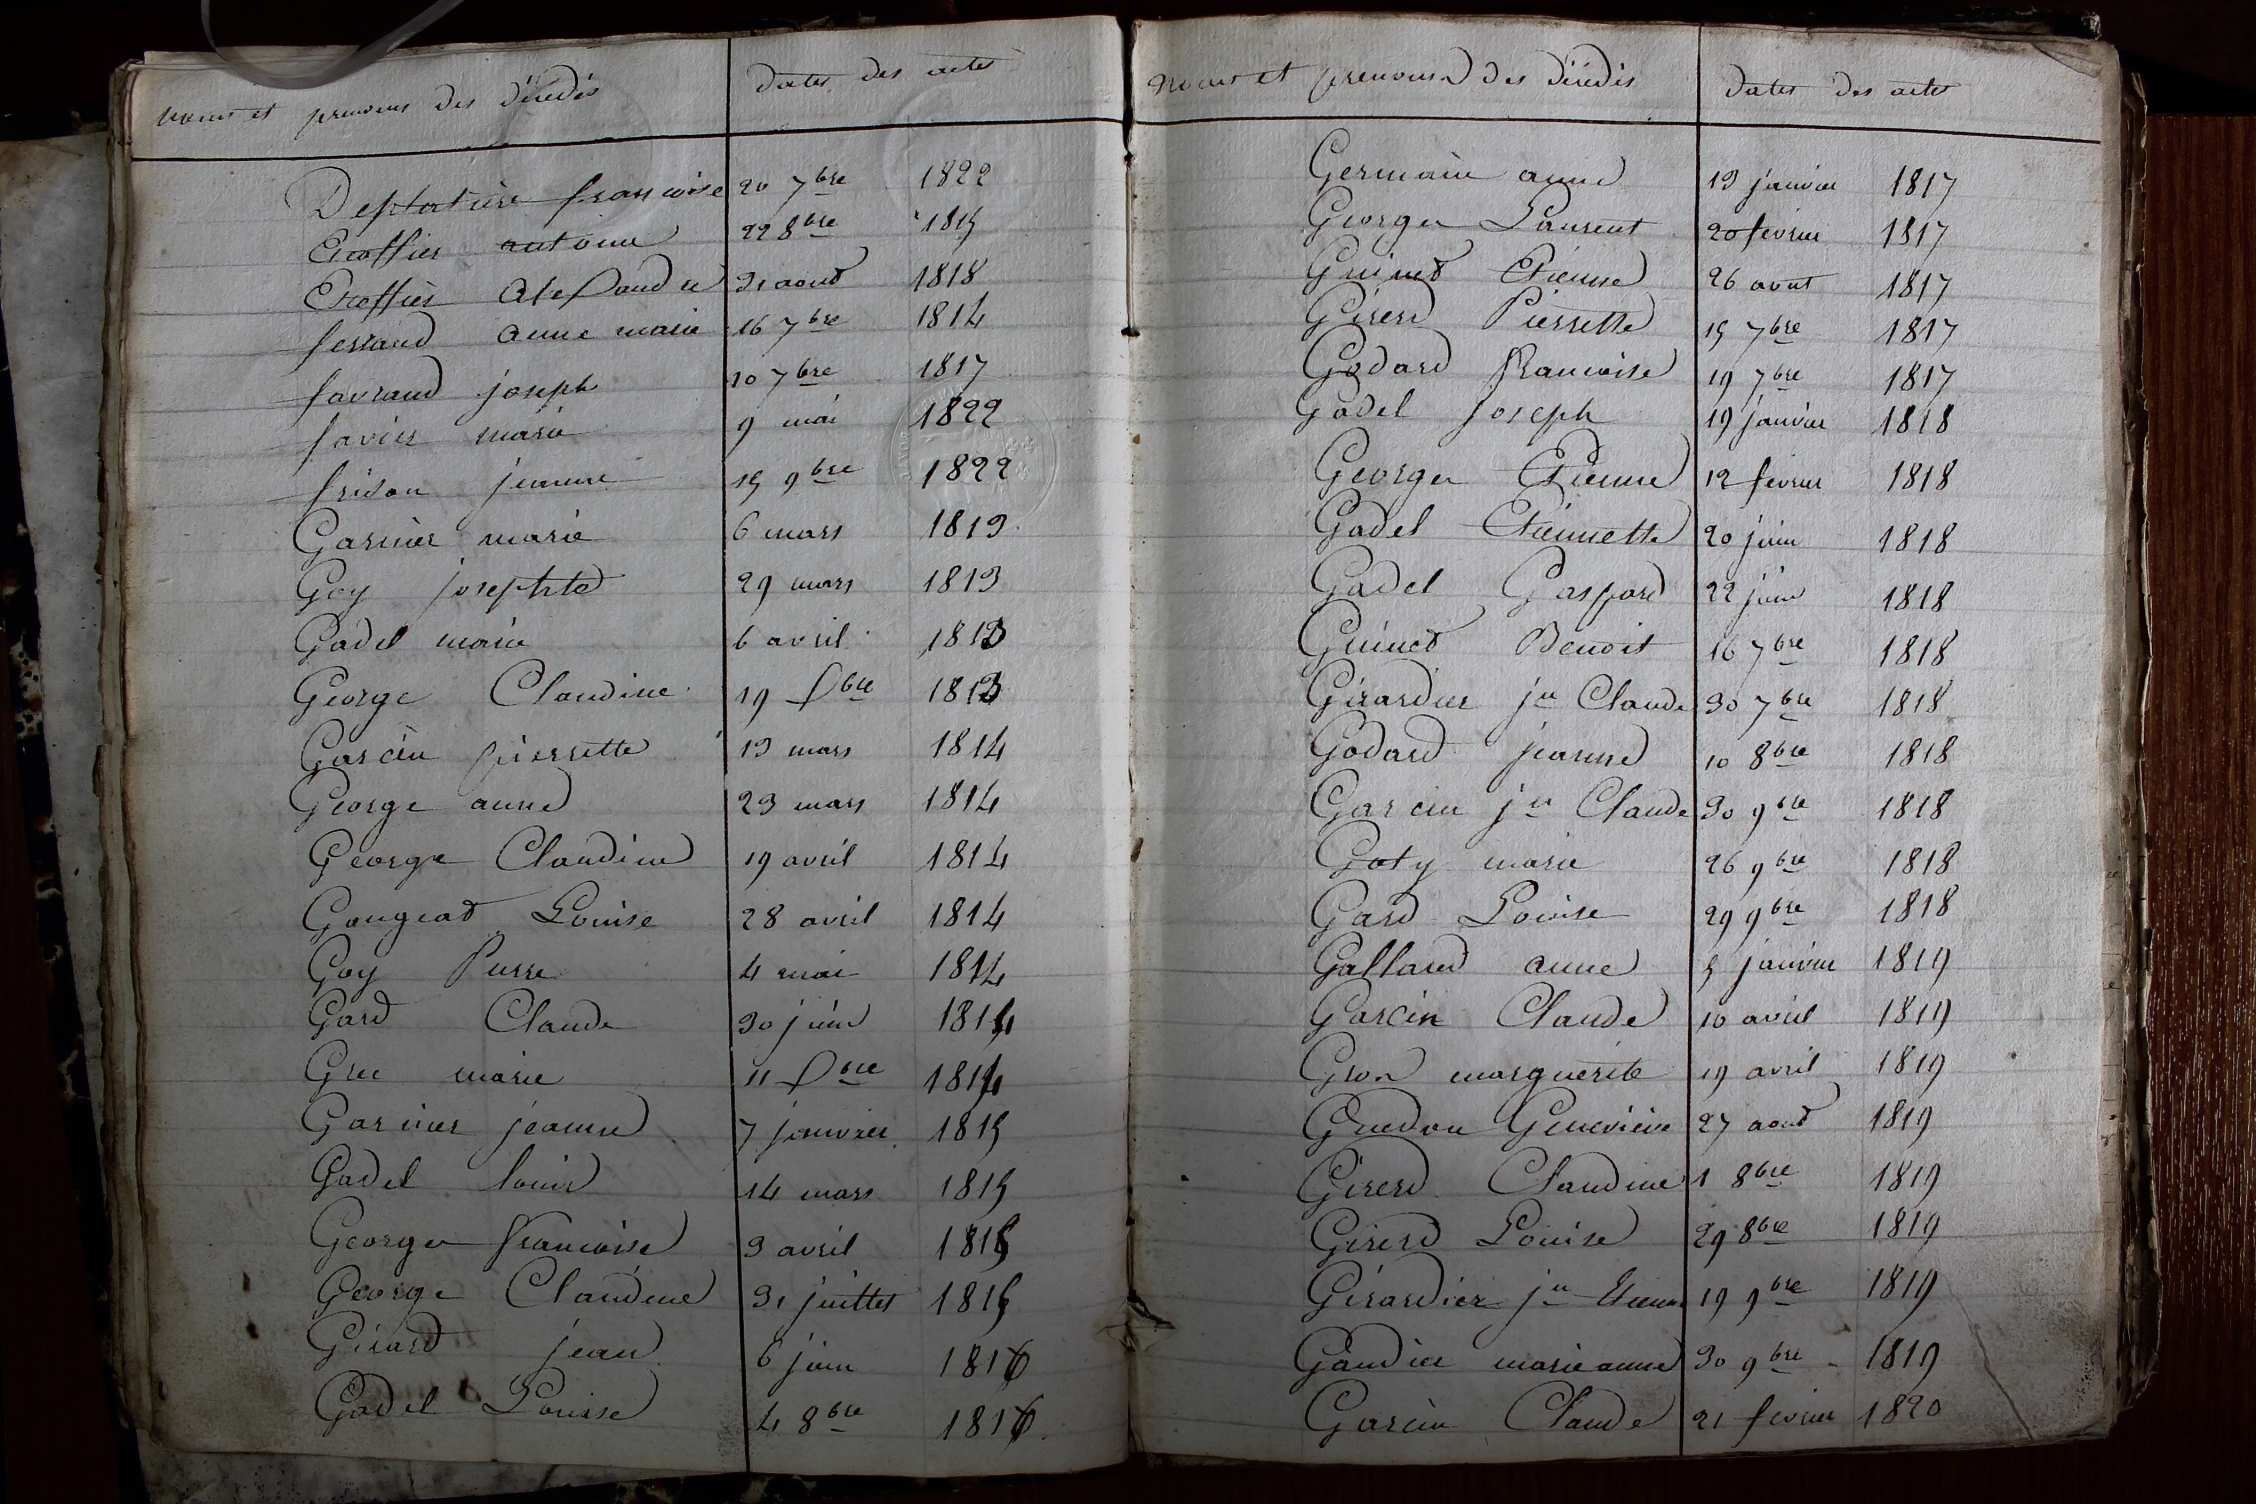 noms et prenoms des décédés dates des actes
Desflatière francoise 20 7bre 1822
Escoffier antoine 22 8bre 1815
Escoffier Alexandre 31 aout 1818
ferrand anne marie 16 7bre 1814
favraud joseph 10 7bre 1817
favier marie 9 mai 1822
frison jeanne 15 9bre 1822
Garnier marie 6 mars 1813
Goy josephte 29 mars 1813
Gadel marie 6 avril 1813
George Claudine 19 Xbre 1813
Garcin pierrette 13 mars 1814
George anne 23 mars 1814
George Claudine 19 avril 1814
Gougeat Louise 28 avril 1814
Goy Pierre 4 mai 1814
Gard Claude 30 juin 1814
Grec marie 11 Xbre 1814
Garnier jeanne 7 janvier 1815
Gadel louis 14 mars 1815
George francoise 3 avril 1815
George Claudine 31 juillet 1815
Girard jean 6 juin 1816
Gadel Louise 4 8bre 1816
noms et prenoms des décédés dates des actes
Germain anne 13 janvier 1817
George Laurent 20 fevrier 1817
Guinet Etienne 26 aout 1817
Girerd Pierrette 15 7bre 1817
Godard francoise 19 7bre 1817
Gadel joseph 19 janvier 1818
George Etienne 12 fevrier 1818
Gadel Etiennette 20 juin 1818
Gadel Gaspard 22 juin 1818
Guinet Benoit 16 7bre 1818
Girardier jn Claude 30 7bre 1818
Godard jeanne 10 8bre 1818
Garcin jn Claude 30 9bre 1818
Goty marie 26 9bre 1818
Gard Louise 29 9bre 1818
Galland anne 5 janvier 1819
Garcin Claude 10 avril 1819
Gron marguerite 19 avril 1819
Guedon Genevieve 27 aout 1819
Girerd Claudine 1 8bre 1819
Girerd Louise 29 8bre 1819
Girardier jn Etienne 19 9bre 1819
Gaudier marie anne 30 9bre 1819
Garcin Claude 21 fevrier 1820